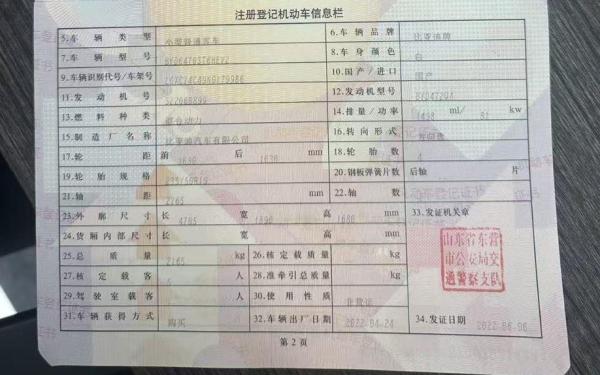 注册登记机动车信息栏
5.车辆类型 小型普通客车 6.车辆品牌 比亚迪牌
7.车辆型号 8.车身颜色 白
9.车辆识别代号/车架号 10.国产/进口 国产
11.发动机号 12.发动机型号 BYD472QA
13.燃料种类 混合动力 14.排量/功率 1498 ml/ 81 kw
15.制造厂名称 比亚迪汽车有限公司 16.转向形式 方向盘
17.轮距 前 后 1630 mm 18.轮胎数 4
19.轮胎规格 235/50R19 20.钢板弹簧片数 后轴 片
21.轴距 2765 mm 22.轴数
23.外廓尺寸 长 4705 宽 1890 高 1680 mm 33.发证机关章
24.货厢内部尺寸 长 宽 高 mm
25.总质量 kg 26.核定载质量 kg
27.核定载客 5 人 28.准牵引总质量 kg
29.驾驶室载客 人 30.使用性质 非营运
31.车辆获得方式 购买 32.车辆出厂日期 2022-04-24 34.发证日期 2022-06-06
山东省东营
市公安局交
通警察支队
第2页